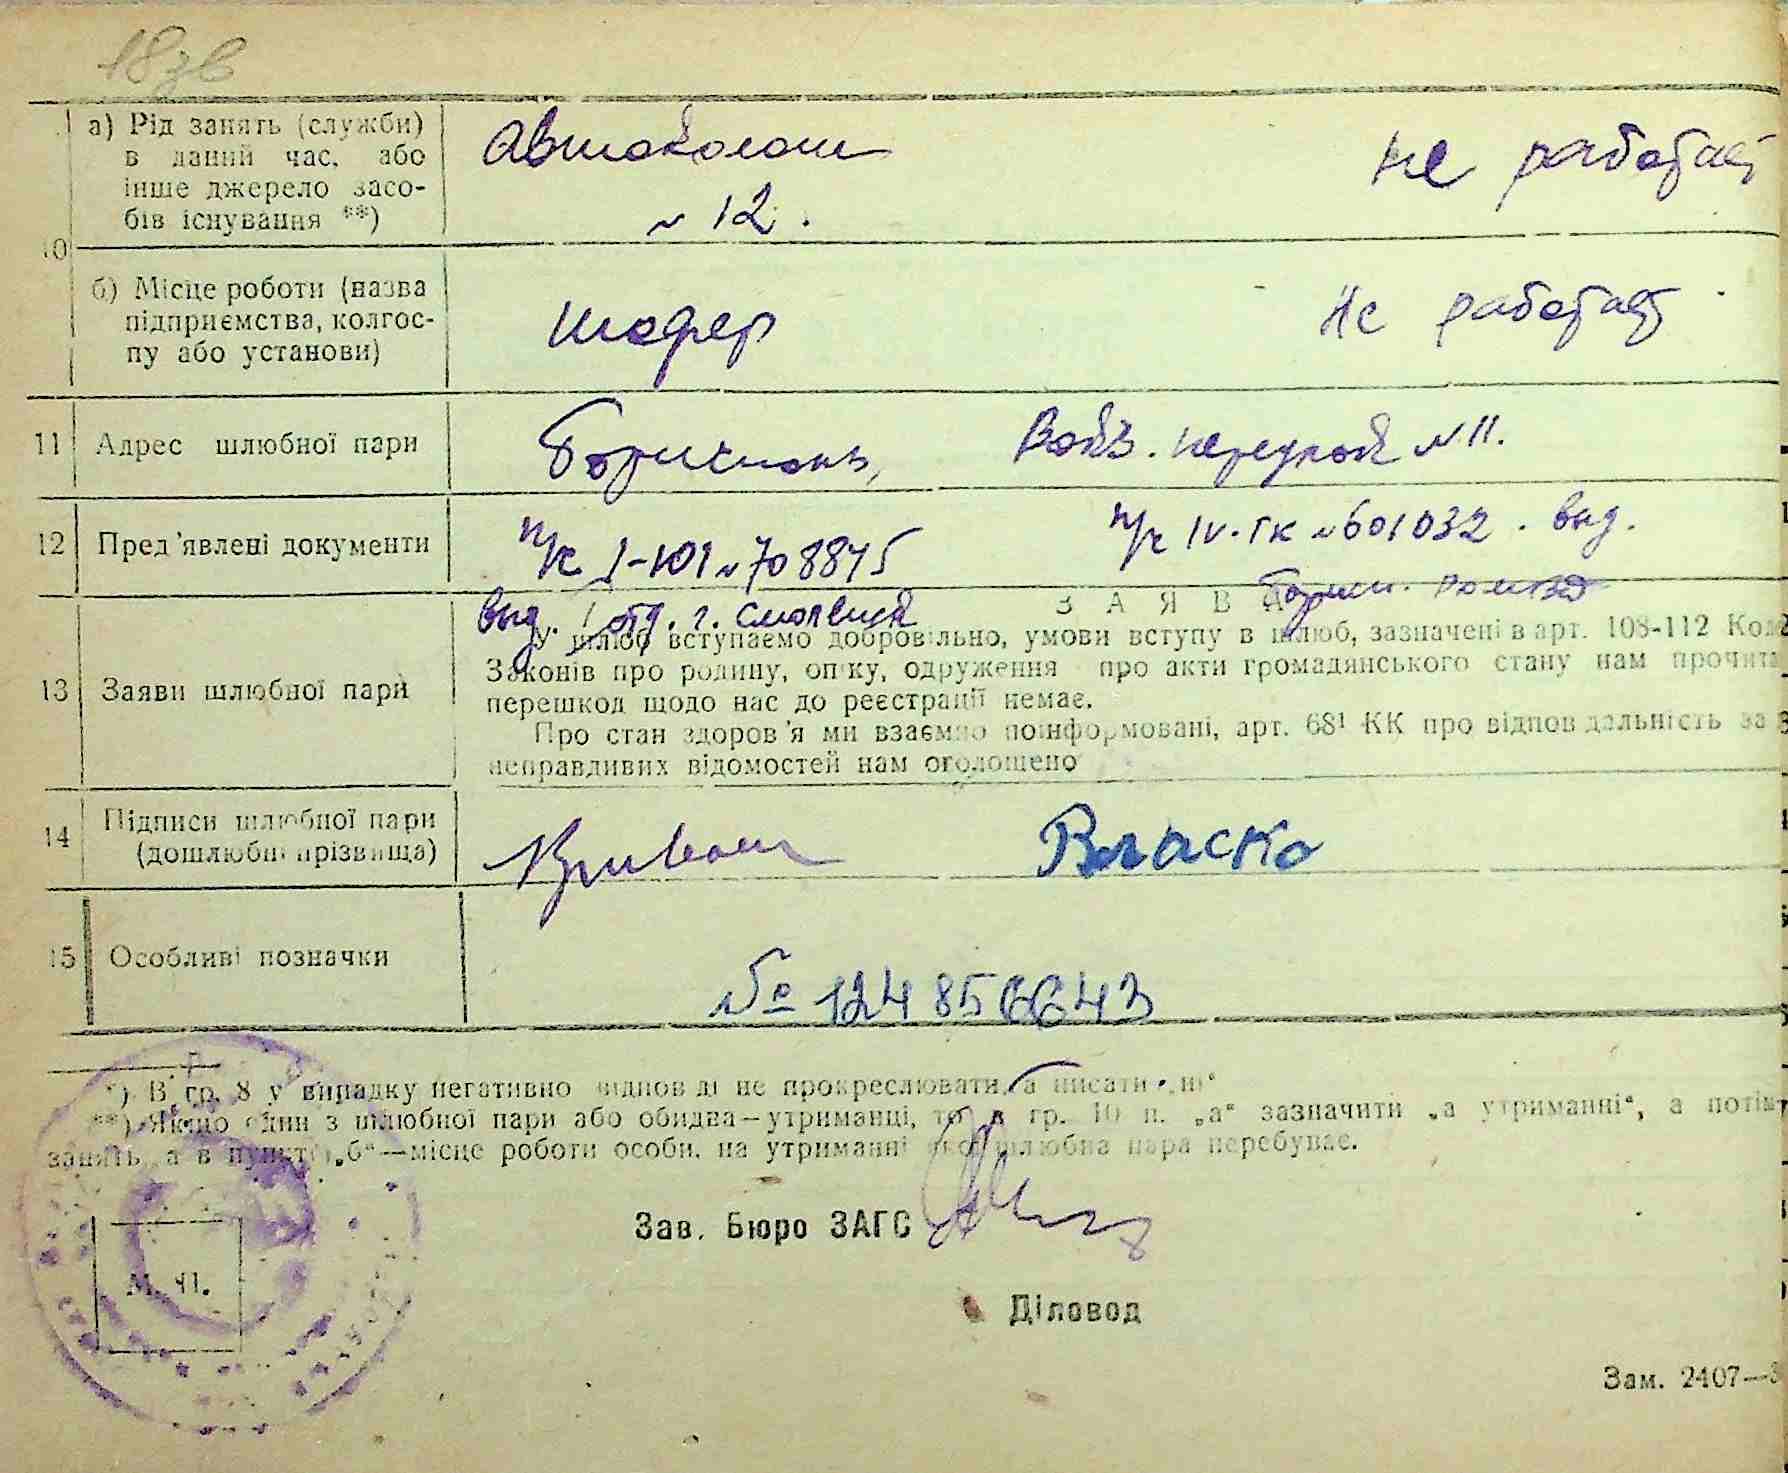 18зв
а) Рід занять (служби)
в даний час, або
інше джерело засо-
бів існування **)
Автоколон
№ 12.
не работает
10
б) Місце роботи (назва
підприємства, колгос-
пу або установи)
шофер
Не работает
11 Адрес шлюбної пари
Бориспонь,
Вокз. переулок № 11.
12 Пред'явлені документи
п/с I-ЮІ № 708845
выд. I отд. г.
п/с IV-ГК № 601032. выд.
ЗАЯВА
13 Заяви шлюбної пари
У шлюб вступаємо добровільно, умови вступу в шлюб, зазначені в арт. 108-112 Код
Законів про родину, опіку, одруження про акти громадянського стану нам прочита
перешкод щодо нас до реєстрації немає.
Про стан здоров'я ми взаємно поінформовані, арт. 68¹ КК про відповідальність за
неправдивих відомостей нам оголошено
14 Підписи шлюбної пари
(дошлюбні прізвища)
Власко
15 Особливі позначки
№ 124856643
*) В гр. 8 у випадку негативно відповіді не прокреслювати, а писати „ні“
**) Якщо один з шлюбної пари або обидва—утриманці, то в гр. 10 п. „а“ зазначити „а утриманні“, а потім
занять, а в пункті „б“—місце роботи особи, на утриманні якої шлюбна пара перебуває.
Зав. Бюро ЗАГС
М. П.
Діловод
Зам. 2407—3